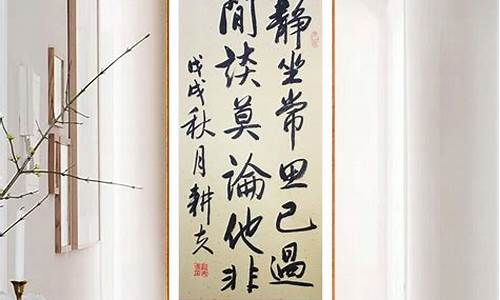 静坐常思己過
閒談莫論他非
戊戌秋月耕夫